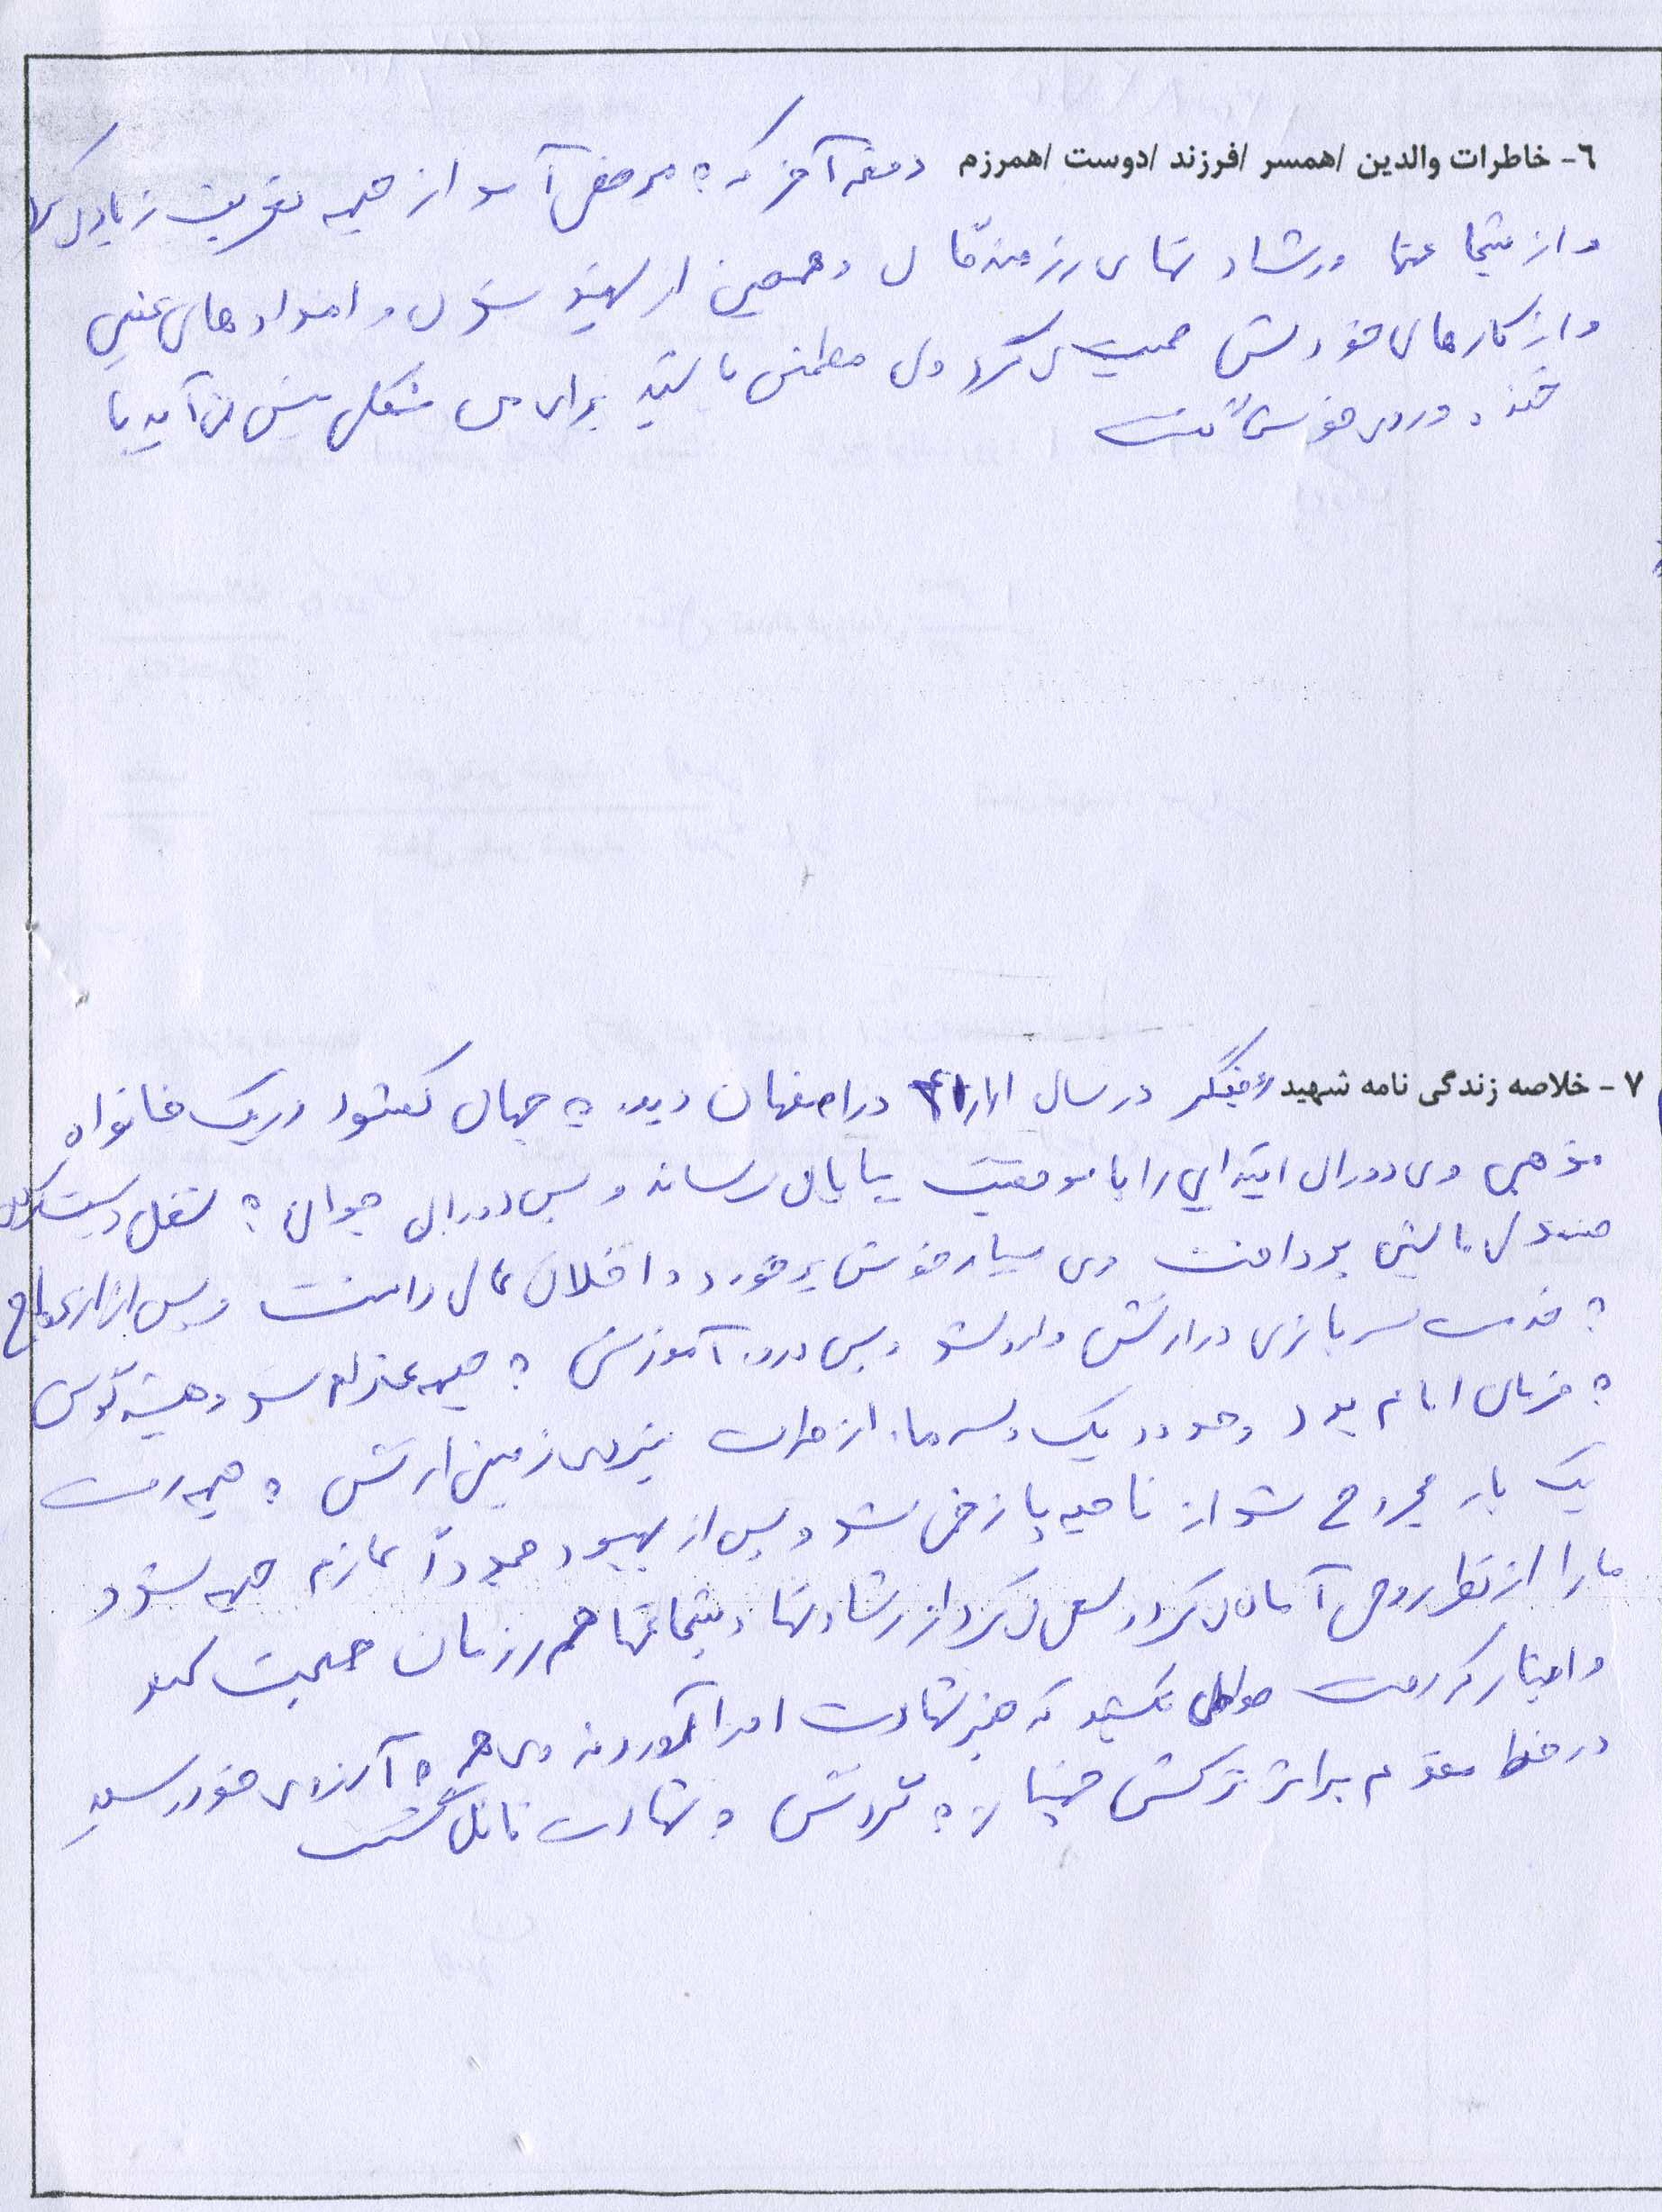 ٦- خاطرات والدین /همسر /فرزند /دوست /همرزم دفعه آخر که به مرخصی آمد از جبهه تعریف زیاد می‌کرد
و از شجاعتها و رشادتهای رزمندگان و همچنین از شهید شدن و امدادهای غیبی
و از کارهای خودش صحبت می‌کرد ولی مطمئن باشید برای من مشکلی پیش نمی‌آید با
خنده‌روی خوش گفت
٧- خلاصه زندگی نامه شهید در سال ۴۱/۱/۱ در اصفهان دیده به جهان گشود در یک خانواده
مذهبی وی دوران ابتدایی را با موفقیت بپایان رساند و پس دوران جوانی به شغل درست کردن
صندلی ماشین پرداخت وی بسیار خوش برخورد و اخلاق عالی داشت و پس از
به خدمت سربازی در ارتش وارد شد و پس دوره آموزش به جبهه اعزام شد و همیشه گوش
به فرمان امام بود و حدود یک و سه ماه از طرف نیروی زمینی ارتش به جبهه رفت
یک بار مجروح شد از ناحیه پا زخمی شد و پس از بهبود مجدداً عازم جبهه شد و
ما را از نظر روحی آماده می‌کرد و سعی می‌کرد از رشادتها و شجاعتها هم رزمان صحبت کند
و این بار که رفت طولی نکشید که خبر شهادت او را آوردند وی هم به آرزوی خود رسید
در خط مقدم بر اثر ترکش خمپاره به گردنش به شهادت نائل گشت